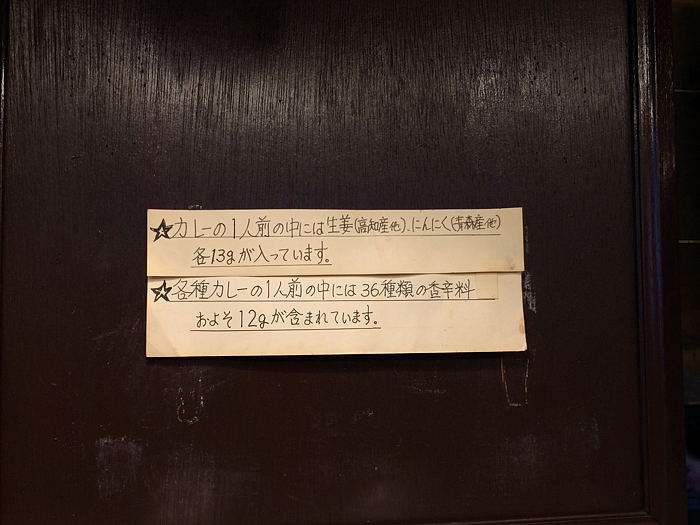 ★カレーの1人前の中には生姜(高知産他)、にんにく(青森産他)
各13gが入っています。
★各種カレーの1人前の中には36種類の香辛料
およそ12gが含まれています。